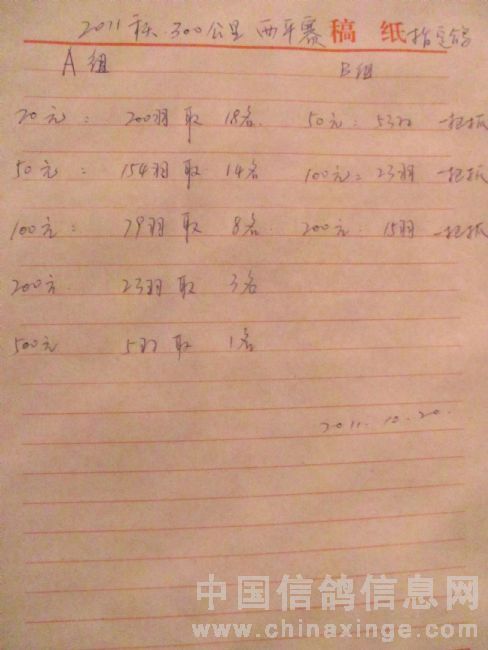 2011秋.300公里 两年赛 稿纸 指定鸽
A组 B组
20元: 200羽取 18名. 50元: 53羽 一把抓
50元: 154羽取 14名 100元: 23羽 一把抓
100元: 79羽取 8名. 200元: 15羽 一把抓
200元. 23羽取 3名
500元 5羽取 1名
2011.10.20.
中国信鸽信息网
www.chinaxinge.com